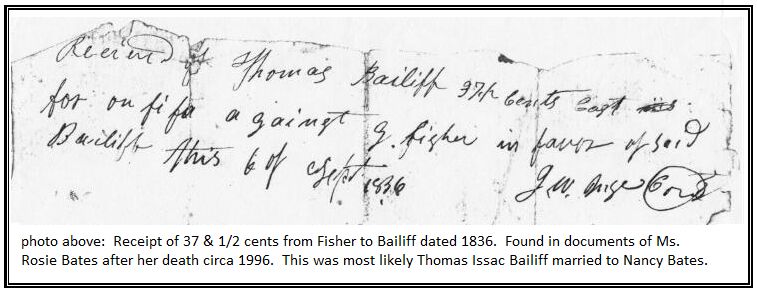 Received of Thomas Bailiff 37½ Cents Cost
for on fi fa a gainst G. fisher in favor of said
Bailiff this 6 of Sept 1836 J. W.
photo above: Receipt of 37 & 1/2 cents from Fisher to Bailiff dated 1836. Found in documents of Ms.
Rosie Bates after her death circa 1996. This was most likely Thomas Issac Bailiff married to Nancy Bates.